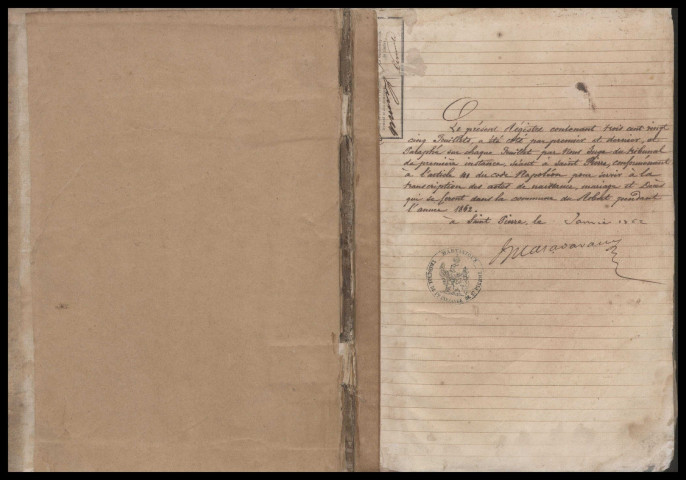 Le présent Registre contenant trois cent vingt
cinq feuillets, a été coté par premier et dernier, et
Paraphé sur chaque feuillet par Nous Juge du tribunal
de première instance, séant à Saint Pierre, conformément
à l'article 41 du code Napoléon pour servir à la
transcription des actes de naissance, mariage et décès
qui se feront dans la commune du Robert pendant
l'année 1862.
à Saint Pierre, le Janvier 1862
MARTINIQUE